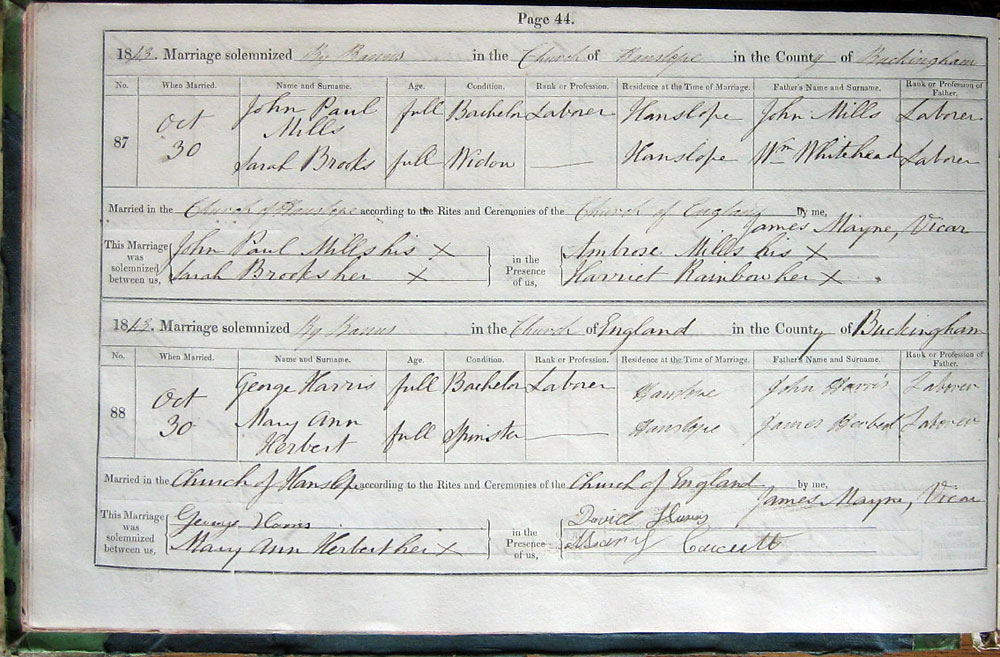 Page 44.
1843. Marriage solemnized By Banns in the Church of Hanslope in the County of Buckingham
No. When Married. Name and Surname. Age. Condition. Rank or Profession. Residence at the Time of Marriage. Father's Name and Surname. Rank or Profession of Father.
87 Oct 30 John Paul Mills full Bachelor Laborer Hanslope John Mills Laborer
Sarah Brooks full Widow Hanslope Wm Whitehead Laborer
Married in the Church of Hanslope according to the Rites and Ceremonies of the Church of England by me,
James Mayne, Vicar
This Marriage was solemnized between us, John Paul Mills his X in the Presence of us, Ambrose Mills his X
Sarah Brooks her X Harriet Rainbow her X
1843. Marriage solemnized By Banns in the Church of England in the County of Buckingham
No. When Married. Name and Surname. Age. Condition. Rank or Profession. Residence at the Time of Marriage. Father's Name and Surname. Rank or Profession of Father.
88 Oct 30 George Harris full Bachelor Laborer Hanslope John Harris Laborer
Mary Ann Herbert full Spinster Hanslope James Herbert Laborer
Married in the Church of Hanslope according to the Rites and Ceremonies of the Church of England by me,
James Mayne, Vicar
This Marriage was solemnized between us, George Harris in the Presence of us, David
Mary Ann Herbert her X Mary